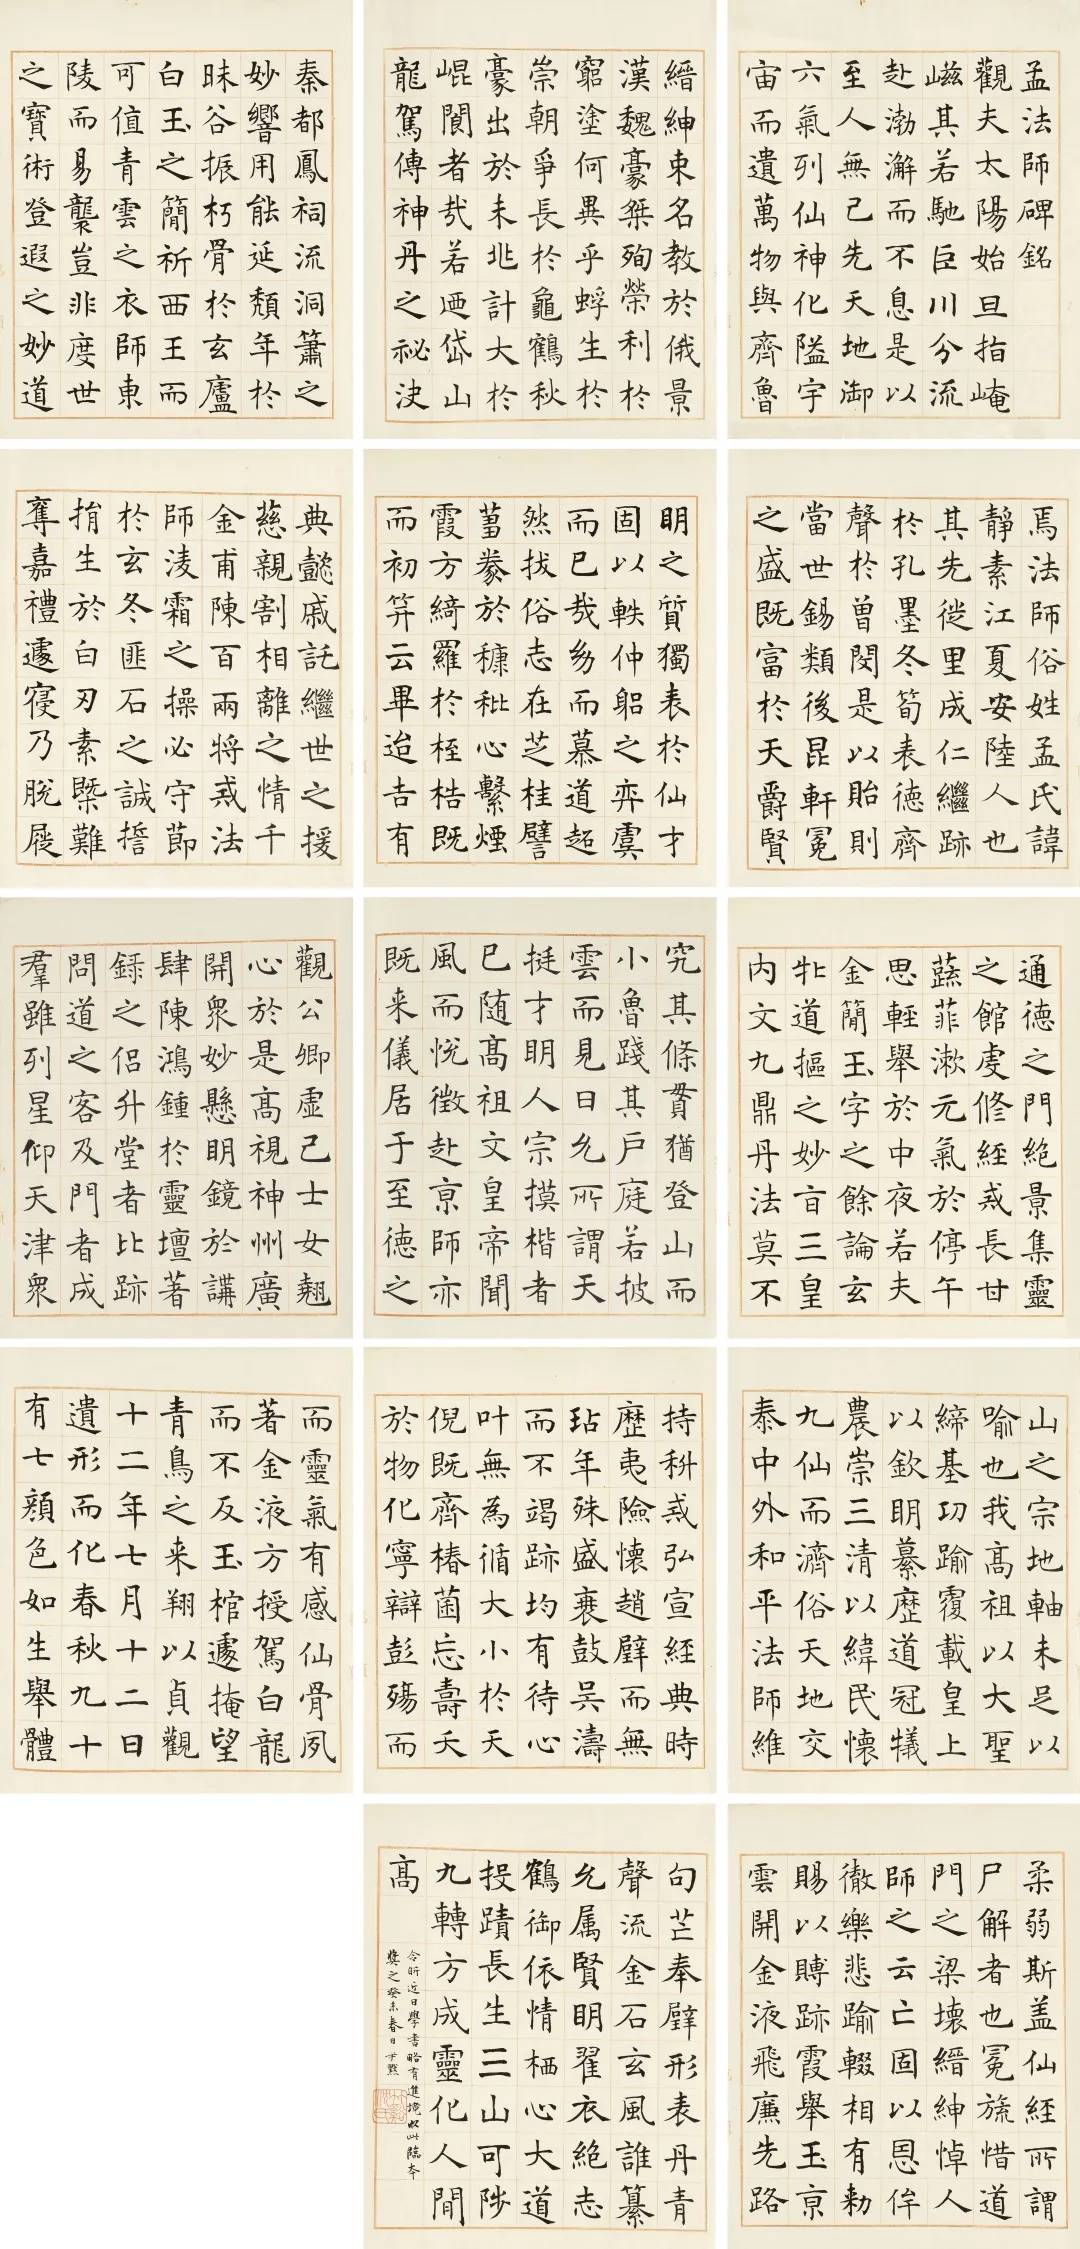 孟法師碑銘
觀夫太陽始旦指崦
嵫其若馳巨川分流
赴渤澥而不息是以
至人無己先天地御
六氣列仙神化隘宇
宙而遺萬物與齊魯
縉紳束名教於俄景
漢魏豪桀殉榮利於
窮塗何異乎蜉生於
崇朝爭長於龜鶴秋
豪出於未兆計大於
崐閬者哉若迺岱山
龍駕傳神丹之祕決
秦都鳳祠流洞簫之
妙響用能延頹年於
昧谷振朽骨於玄廬
白玉之簡祈西王而
可值青雲之衣師東
陵而易襲豈非度世
之寶術登遐之妙道
焉法師俗姓孟氏諱
靜素江夏安陸人也
其先徙里成仁繼跡
於孔墨冬筍表德齊
聲於曾閔是以貽則
當世錫類後昆軒冕
之盛既富於天爵賢
明之質獨表於仙才
固以軼仲躳之弈虞
而已哉幼而慕道超
然拔俗志在芝桂譬
葍豢於糠秕心繫煙
霞方綺羅於桎梏既
而初笄云畢迨吉有
典懿戚託繼世之援
慈親割相離之情千
金甫陳百兩將戒法
師淩霜之操必守節
於玄冬匪石之誠誓
捐生於白刃素槩難
奪嘉禮遽寑乃脫屣
通德之門絕景集靈
之館虔修經戒長甘
蔬菲漱元氣於停午
思輕舉於中夜若夫
金簡玉字之餘論玄
牝道樞之妙旨三皇
內文九鼎丹法莫不
究其條貫猶登山而
小魯踐其戶庭若披
雲而見日允所謂天
挺才明人宗摸楷者
已随高祖文皇帝聞
風而悅徵赴京師亦
既来儀居于至德之
觀公卿虛己士女翹
心於是高視神州廣
開衆妙懸明鏡於講
肆陳鴻鍾於靈壇著
錄之侶升堂者比跡
問道之客及門者成
羣雖列星仰天津衆
山之宗地軸未足以
喻也我高祖以大聖
締基功踰覆載皇上
以欽明纂歷道冠犧
農崇三清以緯民懷
九仙而濟俗天地交
泰中外和平法師維
持科戒弘宣經典時
歷夷險懷趙璧而無
玷年殊盛衰鼓吴濤
而不竭跡均有待心
叶無為循大小於天
倪既齊椿菌忘壽夭
於物化寧辯彭殤而
而靈氣有感仙骨夙
著金液方授駕白龍
而不反玉棺遽掩望
青鳥之来翔以貞觀
十二年七月十二日
遺形而化春秋九十
有七顏色如生舉體
柔弱斯盖仙經所謂
尸解者也冕旒惜道
門之梁壞縉紳悼人
師之云亡固以恩侔
徹樂悲踰輟相有勅
賜以賻跡霞舉玉京
雲開金液飛廉先路
句芒奉璧形表丹青
聲流金石玄風誰纂
允属賢明翟衣絕志
鶴御依情栖心大道
投蹟長生三山可陟
九轉方成靈化人間
高
令昕近日學書略有進境以此臨本
奬之癸未春日尹默